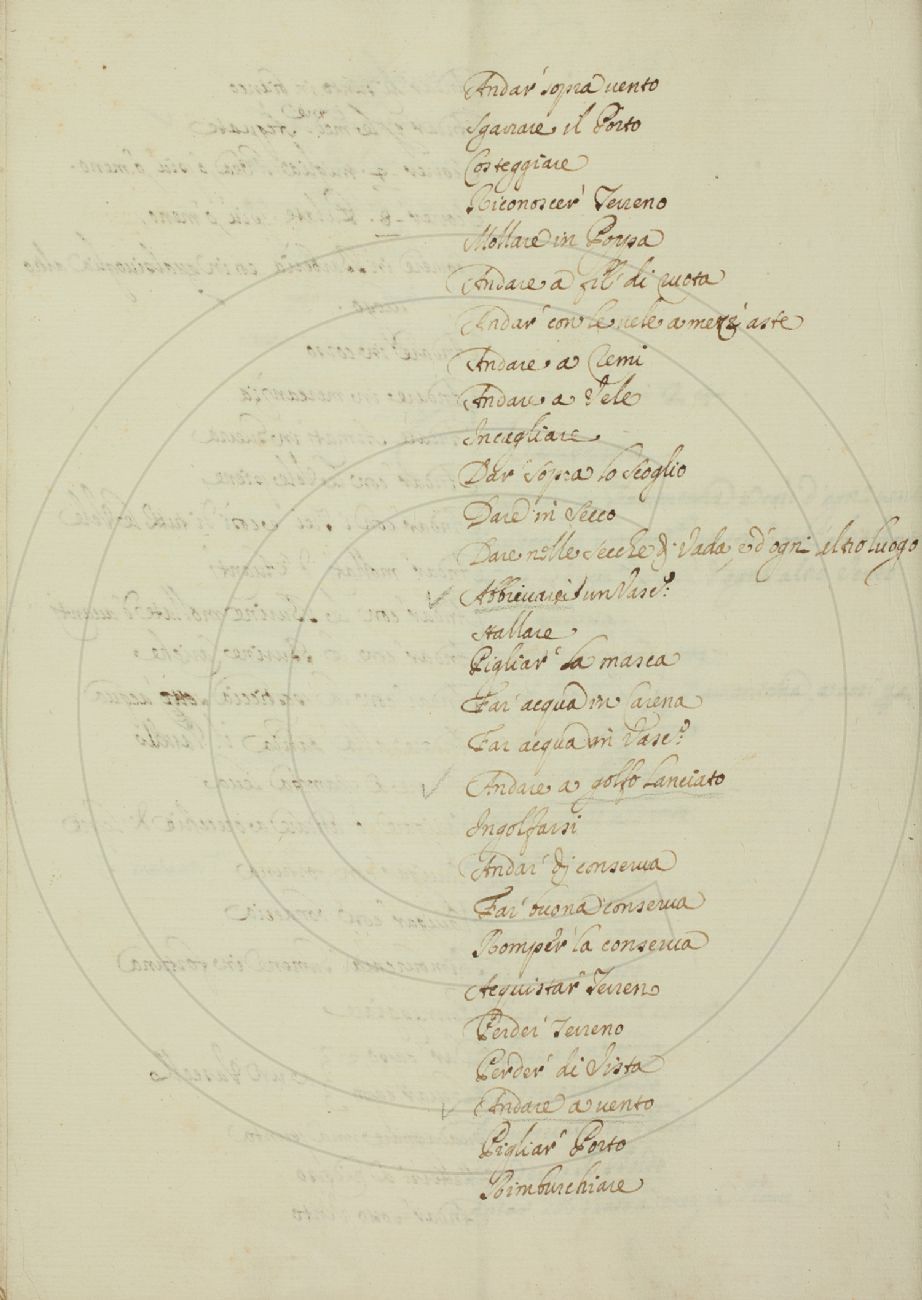 Andar' sopra vento
Sgarrare il Porto
Costeggiare
Riconoscer' Terreno
Mollare in Poppa
Andare a fil' di ruota
Andar' con le vele a mezz'aste
Andare a remi
Andare a Vele
Incagliare
Dar' sopra lo Scoglio
Dare in Secco
Dare nelle Secche di Vada, e d'ogni altro luogo
un Vasc.º
Stallare
Pigliar' la marea
Far acqua in Carena
Far acqua in Vasc.º
Andare a golfo Lanciato
Ingolfarsi
Andar' di conserva
Far' buona conserva
Romper' la conserva
Acquistar' Terreno
Perder' Terreno
Perder' di Vista
Andare a vento
Pigliar' Porto
Rimburchiare